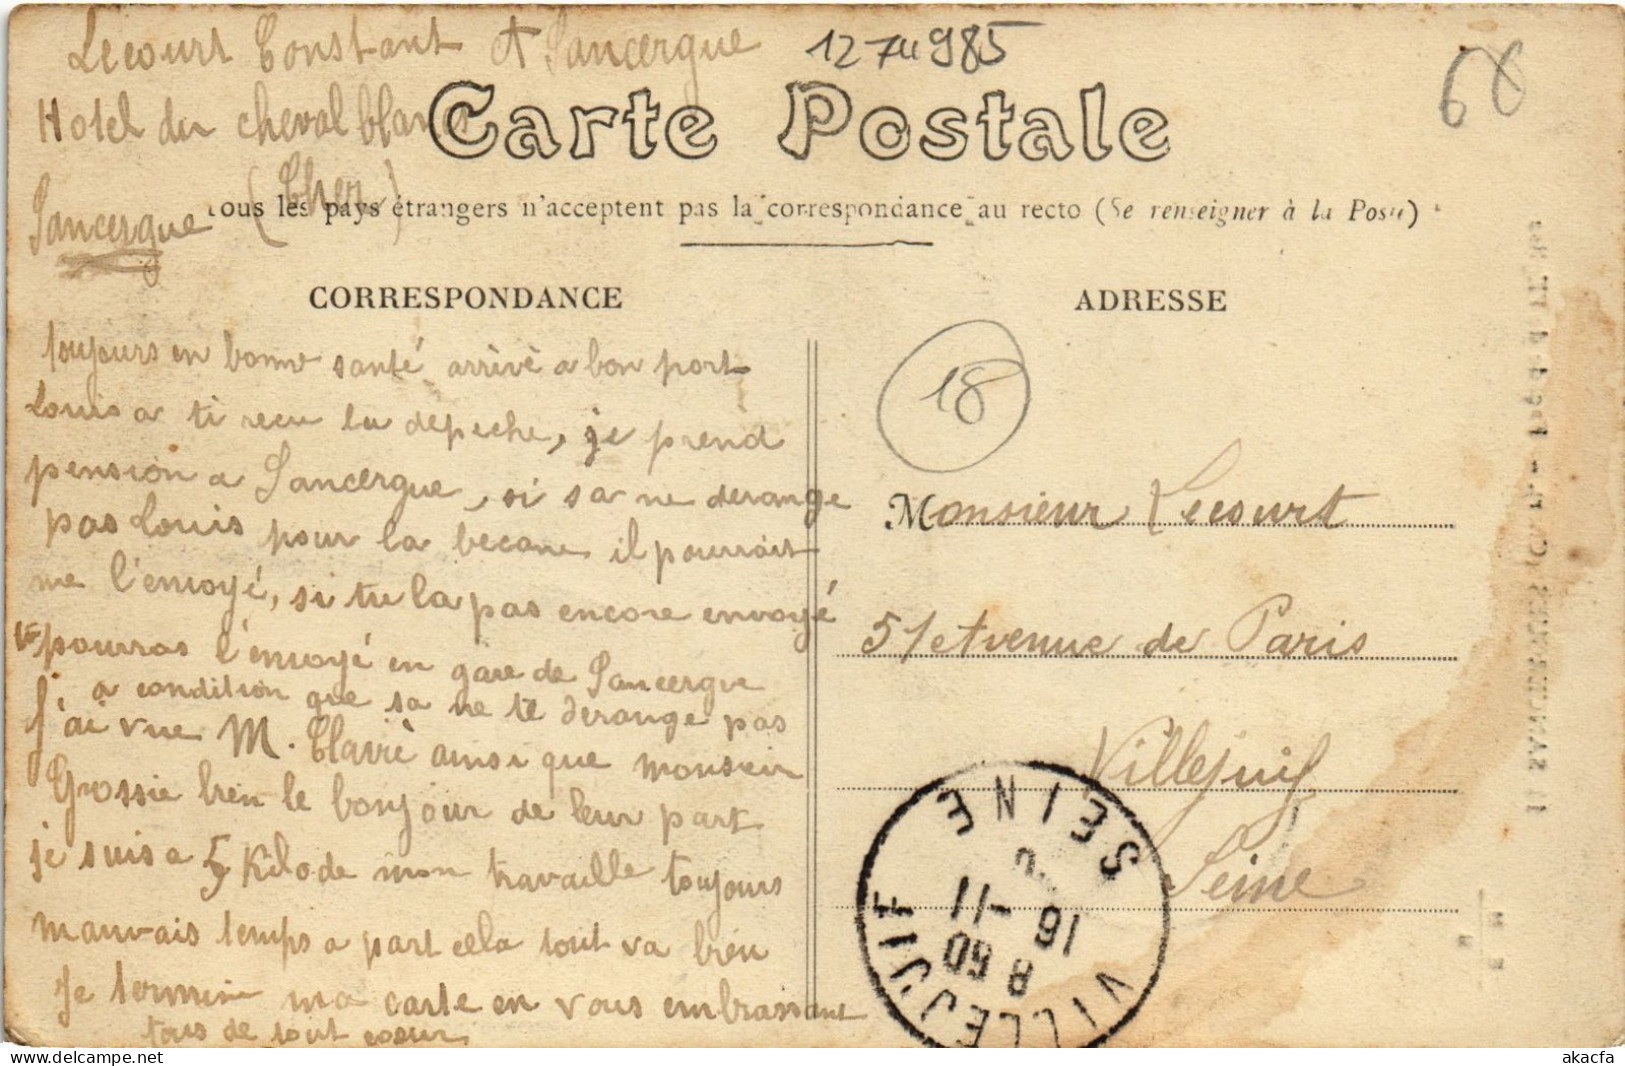 Lecourt Constant A Sancergue
1274985
68
Hotel du cheval blanc
Carte Postale
(Cher)
Sancergue
Tous les pays étrangers n'acceptent pas la correspondance au recto (Se renseigner à la Poste)
CORRESPONDANCE
ADRESSE
toujours en bonne santé arrivé a bon port
Louis a ti recu la depeche, je prend
pension a Sancergue, si sa ne derange
pas Louis pour la becane il pourrait
me l'envoyé, si tu la pas encore envoyé
pourras l'envoyé en gare de Sancergue
a condition que sa ne te derange pas
J'ai vue M. Clavié ainsi que monsieur
Grossie bien le bonjour de leur part
je suis a 5 Kilo de mon travaille toujours
mauvais temps a part cela tout va bien
Je termine ma carte en vous embrassant
tous de tout coeur
18
Monsieur Lecourt
51 Avenue de Paris
Villejuif
Seine
VILLEJUIF
SEINE
8 50
16 -11
akacfa